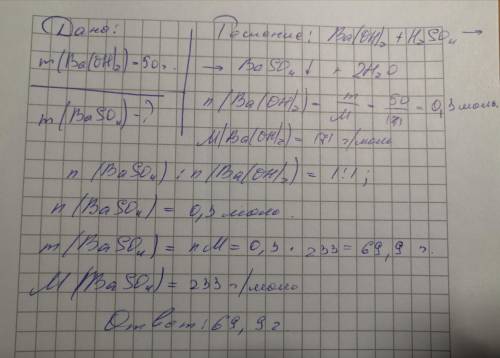 Дано:
m(Ba(OH)₂) - 50г.
m(BaSO₄) - ?
Решение: Ba(OH)₂ + H₂SO₄ →
→ BaSO₄↓ + 2H₂O
n(Ba(OH)₂) = m/M = 50/171 = 0,3 моль.
M(Ba(OH)₂) = 171 г/моль
n(BaSO₄) : n(Ba(OH)₂) = 1:1;
n(BaSO₄) = 0,3 моль.
m(BaSO₄) = nM = 0,3 · 233 = 69,9 г.
M(BaSO₄) = 233 г/моль
Ответ: 69,9г